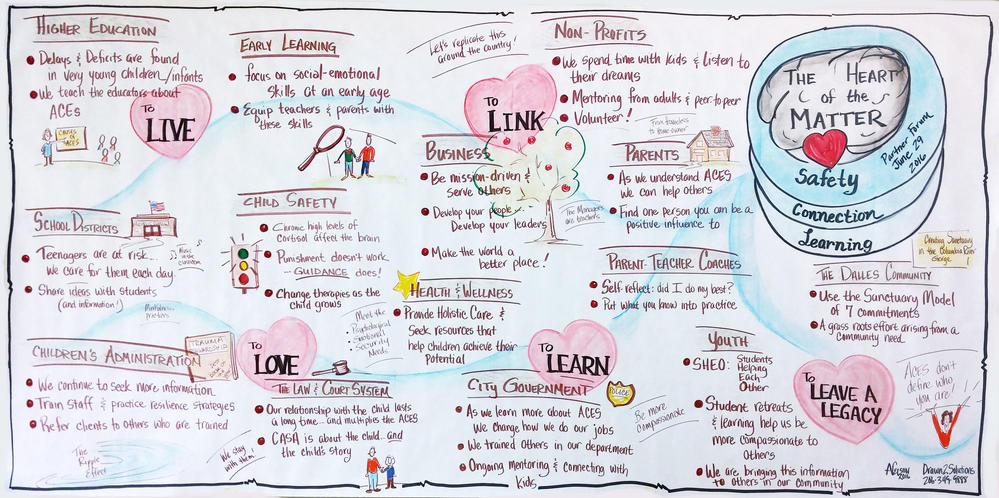 HIGHER EDUCATION
Delays & Deficits are found
in very young children/infants
We teach the educators about
ACEs
CAUSES
OF
ACES
TO
LIVE
EARLY LEARNING
focus on social-emotional
skills at an early age
Equip teachers & parents with
these skills
Let's replicate this
around the country!
TO
LINK
NON-PROFITS
We spend time with kids & listen to
their dreams
Mentoring from adults & peer-to-peer
Volunteer!
From homeless
to home owner
THE HEART
OF THE
MATTER
Partner Forum
June 29
2016
Safety
Connection
Learning
SCHOOL DISTRICTS
Teenagers are at risk...
we care for them each day
Share ideas with students
(and information!)
Music
in the
classroom
CHILD SAFETY
Chronic high levels of
cortisol affect the brain
Punishment doesn't work
GUIDANCE does!
Change therapies as the
child grows
BUSINESS
Be mission-driven &
serve others
Develop your people
Develop your leaders
Make the world a
better place!
The Managers
are teachers
PARENTS
As we understand ACES
we can help others
Find one person you can be a
positive influence to
PARENT-TEACHER COACHES
Self reflect: did I do my best?
Put what you know into practice
Creating Sanctuary
in the Columbia River
Gorge!
THE DALLES COMMUNITY
Use the Sanctuary Model
of 7 commitments
A grass roots effort arising from a
community need
HEALTH & WELLNESS
Provide Holistic Care &
Seek resources that
help children achieve their
Potential
Meet the
Psychological
Emotional
Security
Needs
CHILDREN'S ADMINISTRATION
We continue to seek more information
Train staff & practice resilience strategies
Refer clients to others who are trained
TRAUMA
The
Ripple
Effect
TO
LOVE
THE LAW & COURT SYSTEM
Our relationship with the child lasts
a long time... and multiplies the ACES
CASA is about the child... and
the child's story
We stay
with them!
TO
LEARN
CITY GOVERNMENT
As we learn more about ACES
We change how we do our jobs
We trained others in our department
Ongoing mentoring & connecting with
kids
POLICE
Be more
compassionate
YOUTH
SHEO: Students
Helping
Each
Other
Student retreats
& learning help us be
more compassionate to
others
We are bringing this information
to others in our community
TO
LEAVE A
LEGACY
ACES don't
define who
you are!
2016
Drawn2Solutions